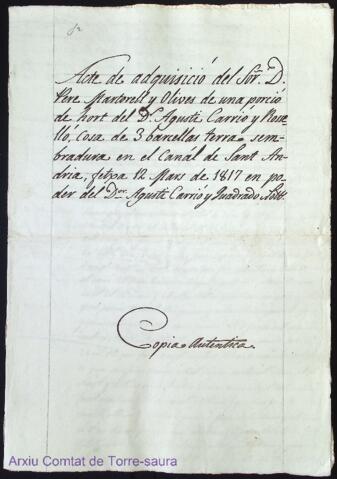 Acte de adquisició del Sor. D.
Pere Martorell y Olives de una porció
de hort del Dr. Agustí Carrió y Rose-
lló, cosa de 3 barcellas terra sem-
bradura en el Canál de Sant An-
dria, fetxa 12 Mars de 1817 en po-
der del Dor. Agustí Carrió y Quadrado Nott.
Copia Autentica.
Arxiu Comtat de Torre-saura